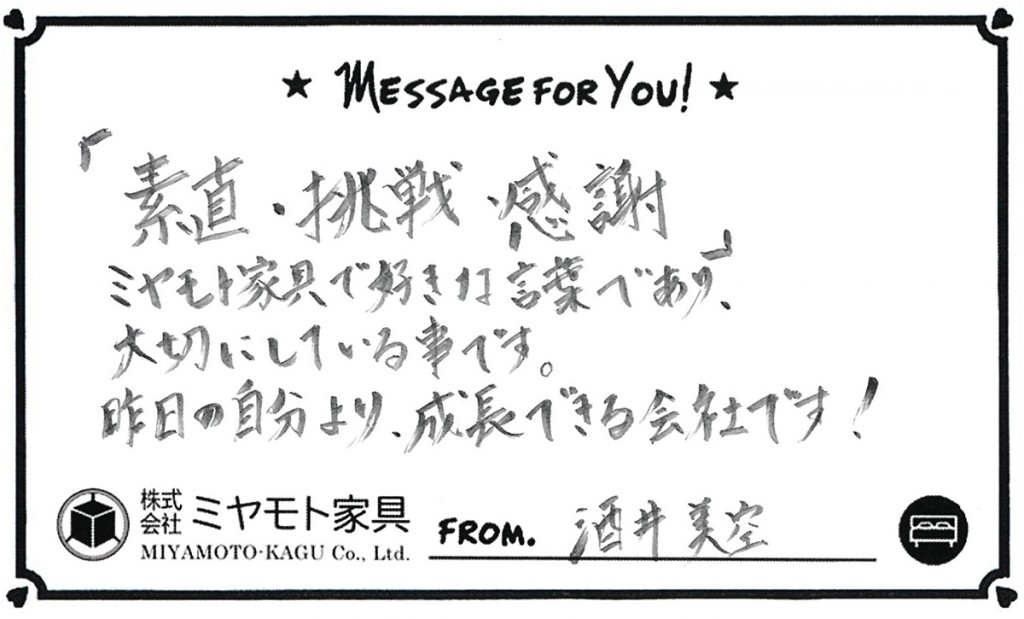 ★ MESSAGE FOR YOU! ★
「素直・挑戦・感謝」
ミヤモト家具で好きな言葉であり、
大切にしている事です。
昨日の自分より、成長できる会社です!
株式会社 ミヤモト家具
MIYAMOTO-KAGU Co., Ltd.
FROM. 酒井 美空